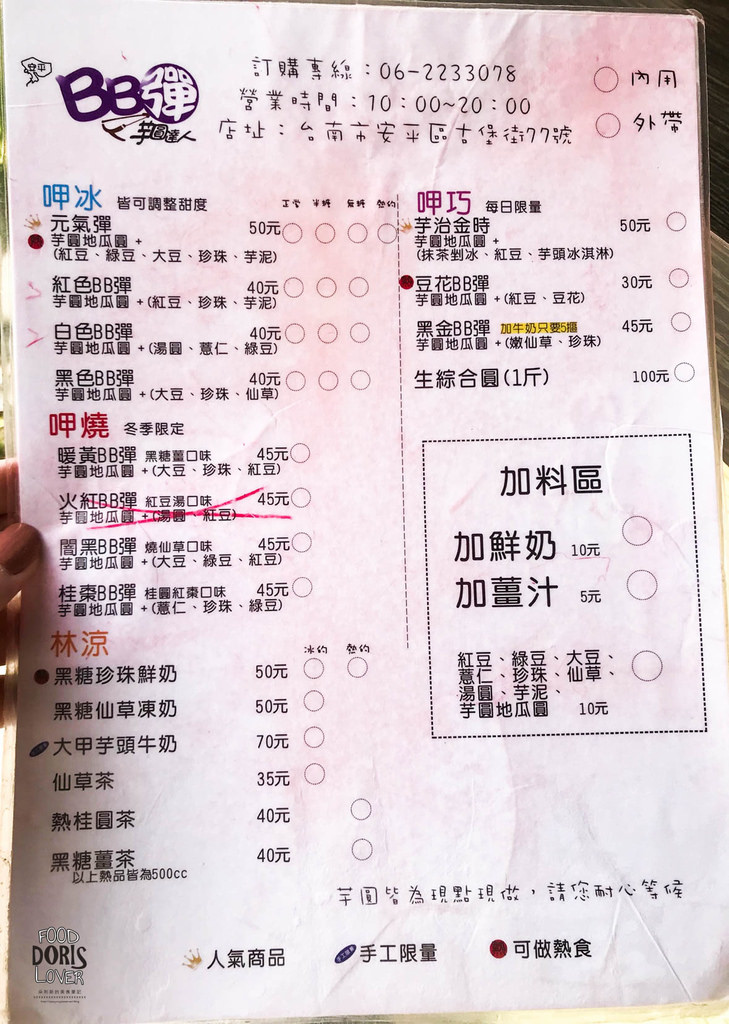 安平
BB彈
芋圓達人
訂購專線：06-2233078
營業時間：10：00~20：00
店址：台南市安平區古堡街77號
內用
外帶
呷冰 皆可調整甜度
正常 半糖 無糖 熱的
元氣彈 50元
芋圓地瓜圓 +
(紅豆、綠豆、大豆、珍珠、芋泥)
紅色BB彈 40元
芋圓地瓜圓 +(紅豆、珍珠、芋泥)
白色BB彈 40元
芋圓地瓜圓 +(湯圓、薏仁、綠豆)
黑色BB彈 40元
芋圓地瓜圓 +(大豆、珍珠、仙草)
呷燒 冬季限定
暖黃BB彈 黑糖薑口味 45元
芋圓地瓜圓 +(大豆、珍珠、紅豆)
火紅BB彈 紅豆湯口味 45元
芋圓地瓜圓 +(湯圓、紅豆)
闇黑BB彈 燒仙草口味 45元
芋圓地瓜圓 +(大豆、綠豆、紅豆)
桂棗BB彈 桂圓紅棗口味 45元
芋圓地瓜圓 +(薏仁、珍珠、綠豆)
林涼
冰的 熱的
黑糖珍珠鮮奶 50元
黑糖仙草凍奶 50元
大甲芋頭牛奶 70元
仙草茶 35元
熱桂圓茶 40元
黑糖薑茶 40元
以上熱品皆為500cc
呷巧 每日限量
芋治金時 50元
芋圓地瓜圓 +
(抹茶剉冰、紅豆、芋頭冰淇淋)
豆花BB彈 30元
芋圓地瓜圓 +(紅豆、豆花)
黑金BB彈 加牛奶只要5摳 45元
芋圓地瓜圓 +(嫩仙草、珍珠)
生綜合圓(1斤) 100元
加料區
加鮮奶 10元
加薑汁 5元
紅豆、綠豆、大豆、
薏仁、珍珠、仙草、
湯圓、芋泥、
芋圓地瓜圓 10元
芋圓皆為現點現做，請您耐心等候
人氣商品
手工限量
可做熱食
FOOD
DORIS
LOVER